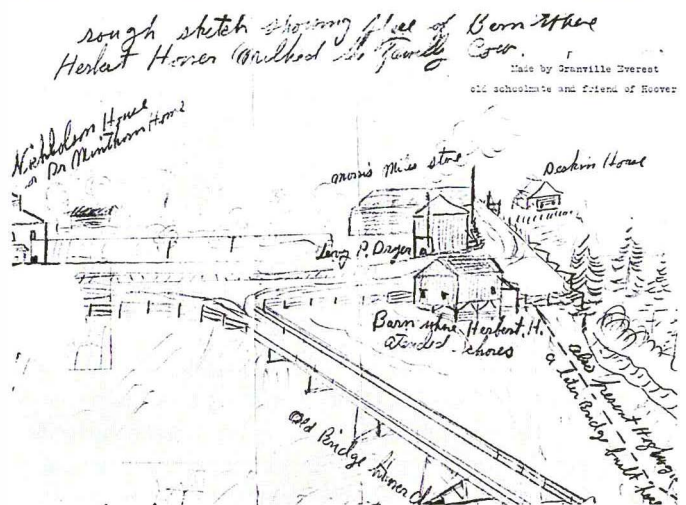 rough sketch showing place of Barn where
Herbert Hoover Milked the Family Cow.
Made by Granville Everest
old schoolmate and friend of Hoover
Nichkolson House
or Dr Minthorn Home
Morris Miles store
Deskin House
P. Dryer
Barn where Herbert. H.
atended chores
also present Highway
a later Bridge built here
Old Bridge